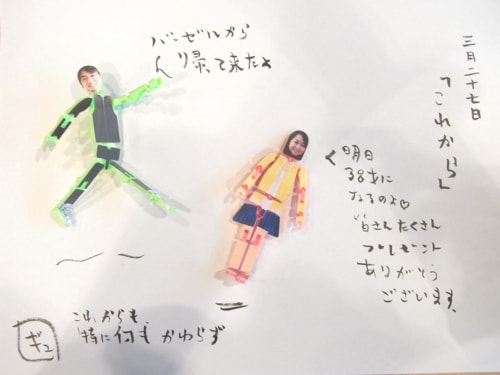 三月二十七日
「これから」
バーゼルから
帰って来たよ
明日
38才に
なるのよ♡
皆さんたくさん
プレゼント
ありがとう
ございます。
これからも、
特に何もかわらず